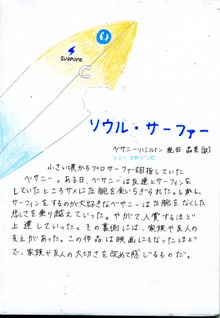 SURPONG
ソウル・サーファー
ベサニー・ハミルトン 鹿田 昌美[訳]
ソニー・マガジンズ
小さい頃からプロサーファーを目指していた
ベサニー。ある日、ベサニーは友達とサーフィンを
していたところサメに左腕を食いちぎられた。しかし、
サーフィンをするのが大好きなベサニーは左腕をなくした
悲しさを乗り越えていった。やがて、入賞するほど
上達していった。その裏側には、家族や友人の
支えがあった。この作品は映画にもなったほど
で、家族や友人の大切さを改めて感じるものだ。